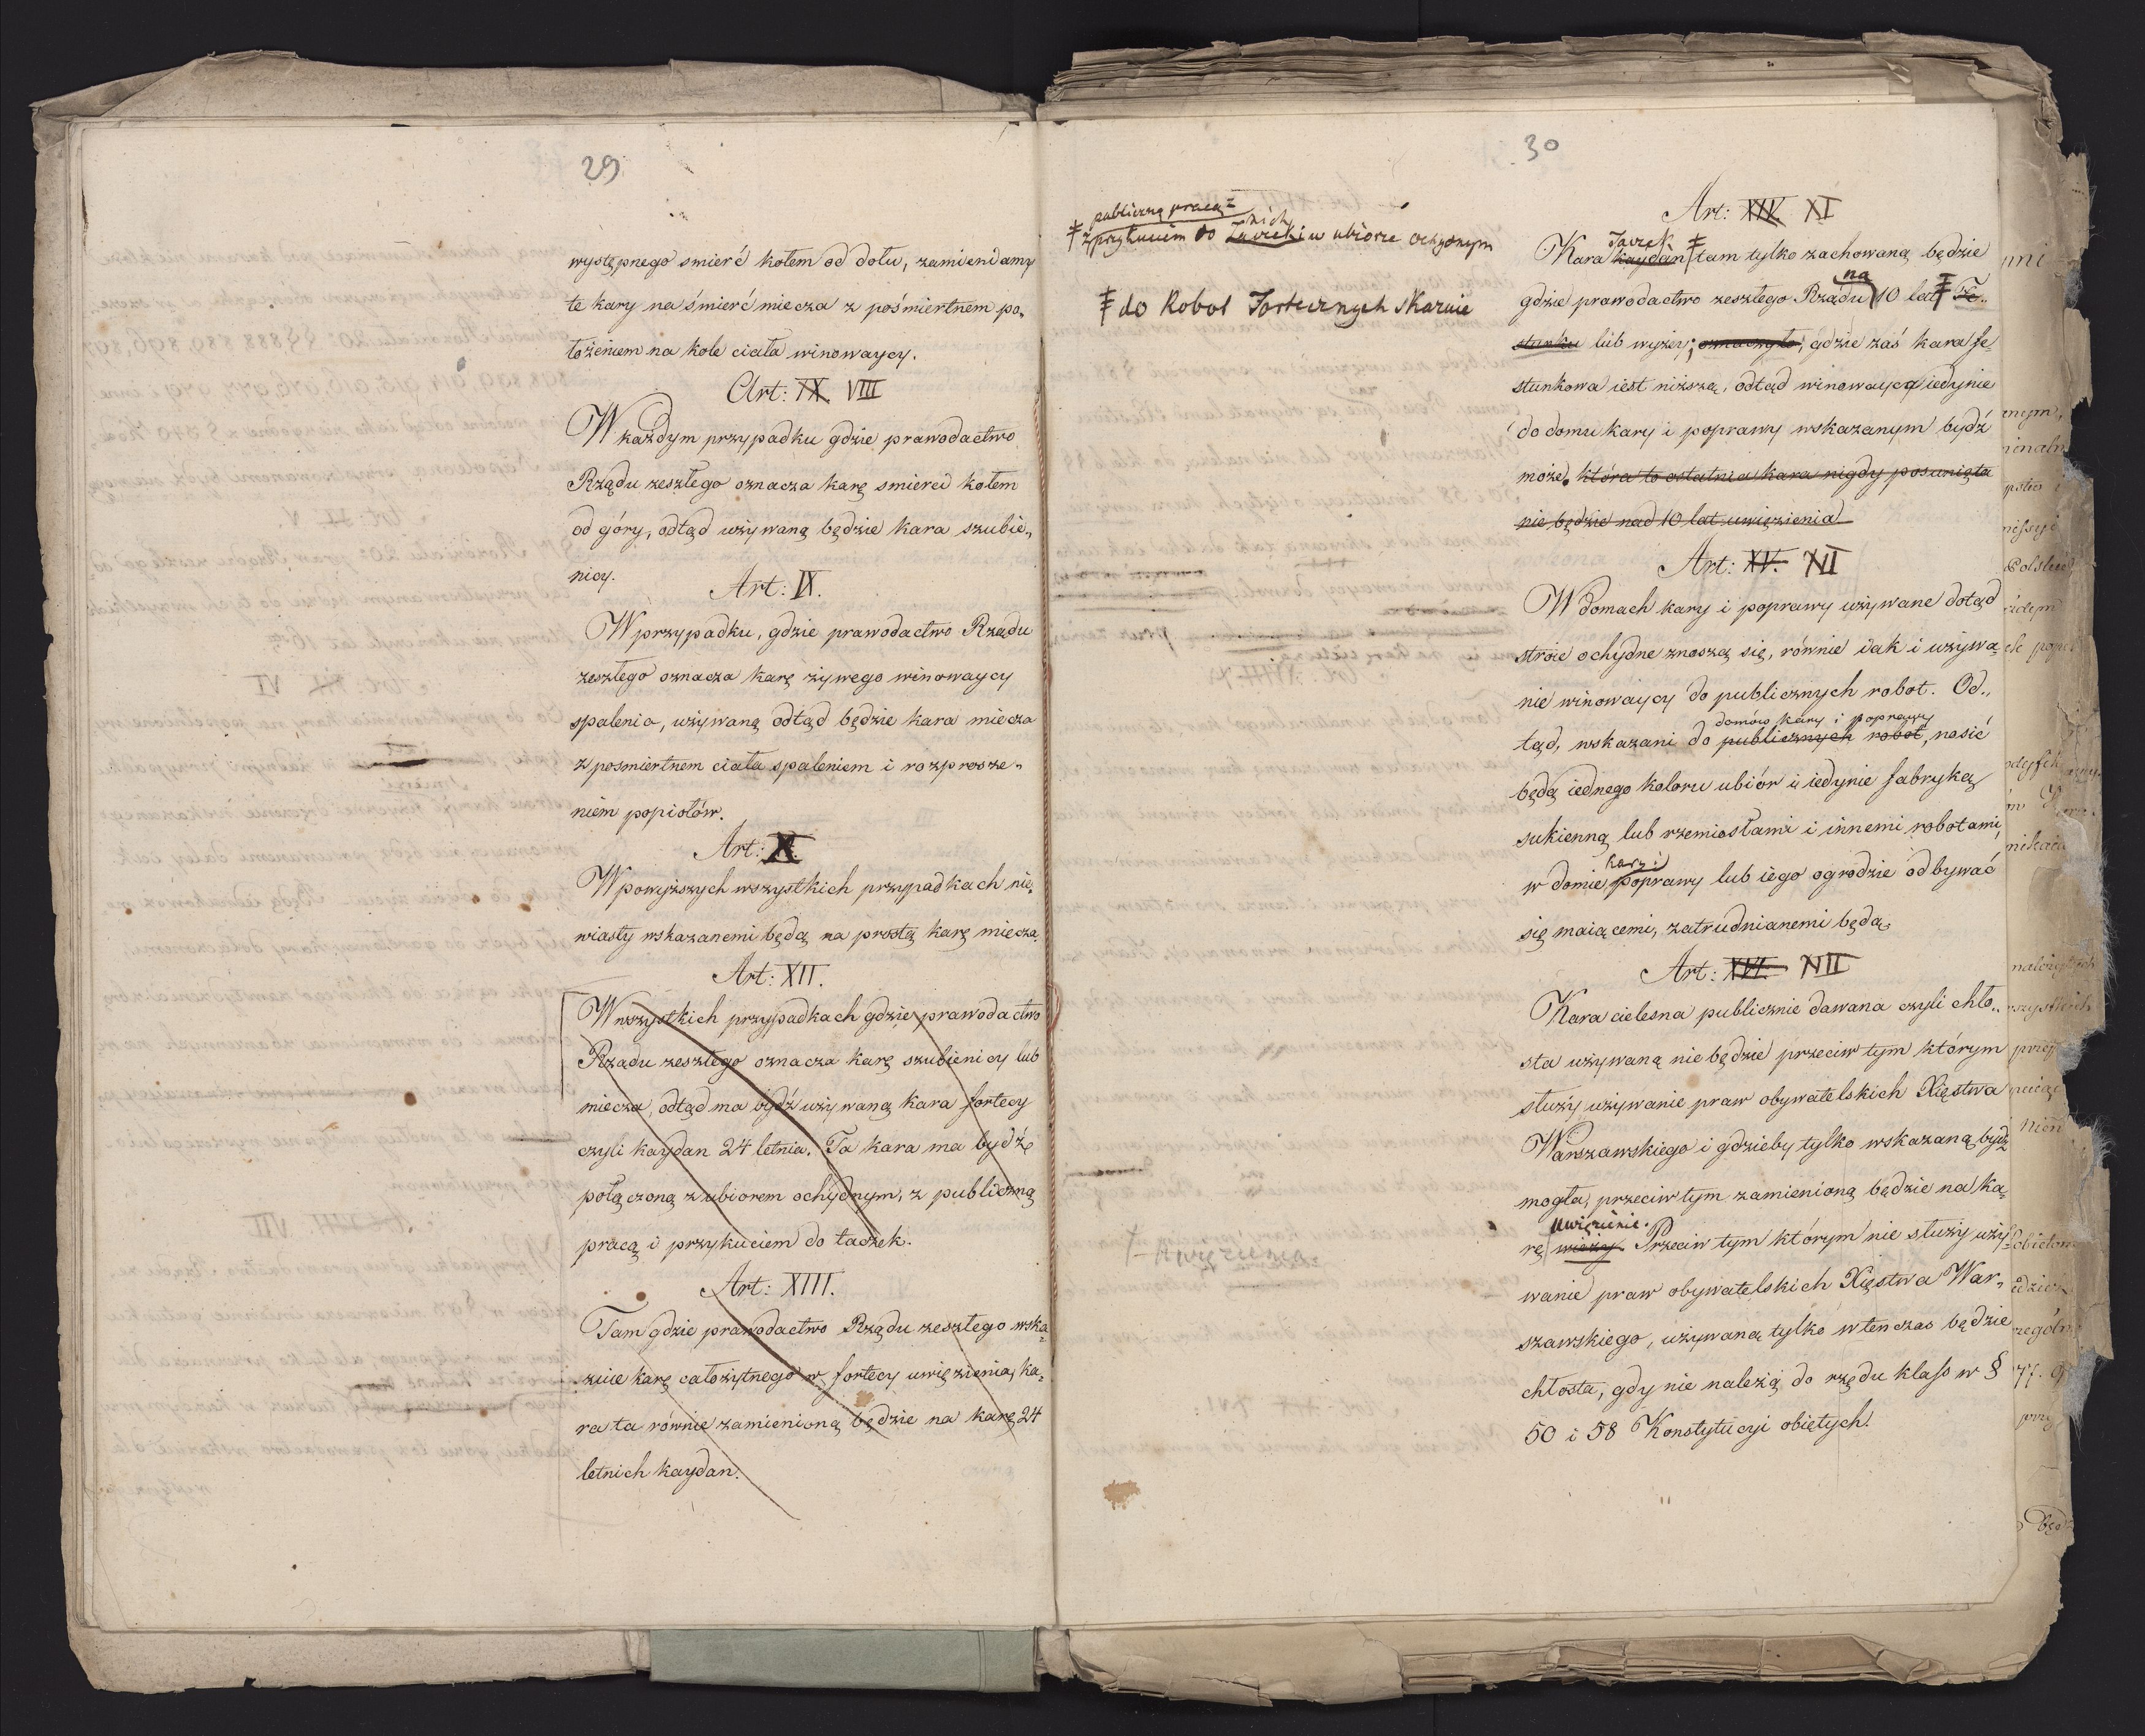 29
występnego smierć kołem od dołu, zamieniamy
te kary na śmierć miecza z pośmiertnem po„
łożeniem na kole ciała winowaycy.
Art: IX VIII
W każdym przypadku gdzie prawodactwo
Rządu zeszłego oznacza karę smierci kołem
od góry, odtąd używaną będzie kara szubie„
nicy.
Art: IX.
W przypadku, gdzie prawodactwo Rządu
zeszłego oznacza karę żywego winowaycy
spalenia, używaną odtąd będzie kara miecza
z posmiertnem ciała spaleniem i rozprosze„
niem popiołów.
Art: X.
W powyższych wszystkich przypadkach nie„
wiasty wskazanemi będą na prostą karę miecza.
Art: XII.
W wszystkich przypadkach gdzie prawodactwo
Rządu zeszłego oznacza karę szubienicy lub
miecza, odtąd ma bydź używaną kara fortecy
czyli kaydan 24 letnia. Ta kara ma bydź
połączoną z ubiorem ochydnym, z publiczną
pracą i przykuciem do taczek.
Art: XIII.
Tam gdzie prawodactwo Rządu zeszłego wska„
zuie karę całożytnego w fortecy uwięzienia, ka„
ra ta równie zamienioną będzie na karę 24
letnich kaydan.
30
publiczną pracą
z przykuciem do Taczek i w ubiorze ochydnym
do Robot Fortecznych skazuie
Art: XIV. XI
Taczek
Kara kaydan tam tylko zachowaną będzie
na
gdzie prawodactwo zeszłego Rządu 10 lat Fe„
stunku lub wyżey; oznaczyło, gdzie zaś kara fe„
stunkowa iest niższą, odtąd winowayca iedynie
do domu kary i poprawy wskazanym bydź
może. która to ostatnia kara nigdy posunięta
nie będzie nad 10 lat uwięzienia
Art: XV. XII
W domach kary i poprawy używane dotąd
stroie ochydne znoszą się, równie iak i używa„
nie winowaycy do publicznych robot. Od„
domów kary i poprawy
tąd, wskazani do publicznych robot, nosić
będą iednego koloru ubiór i iedynie fabryką
sukienną lub rzemiosłami i innemi robotami,
kary i
w domie poprawy lub iego ogrodzie odbywać
się maiącemi, zatrudnianemi będą.
Art: XVI. XIII
Kara cielesna publicznie dawana czyli chło„
sta używaną nie będzie przeciw tym którym
służy używanie praw obywatelskich Xięstwa
Warszawskiego i gdzieby tylko wskazaną bydź
mogła, przeciw tym zamienioną będzie na ka„
uwięzienie.
rę wieży. Przeciw tym którym nie służy uży„
+ uwięzienia.
wanie praw obywatelskich Xięstwa War„
szawskiego, używaną tylko wtenczas będzie
chłosta, gdy nie należą do rzędu klass w §
50 i 58 Konstytucyi obiętych.